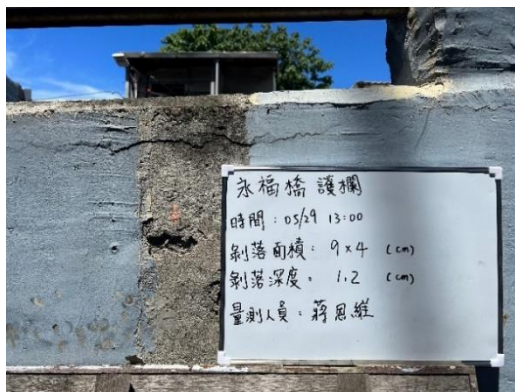 永福橋護欄
時間：05/29 13:00
剝落面積：9×4 (cm)
剝落深度：1.2 (cm)
量測人員：蔣恩維